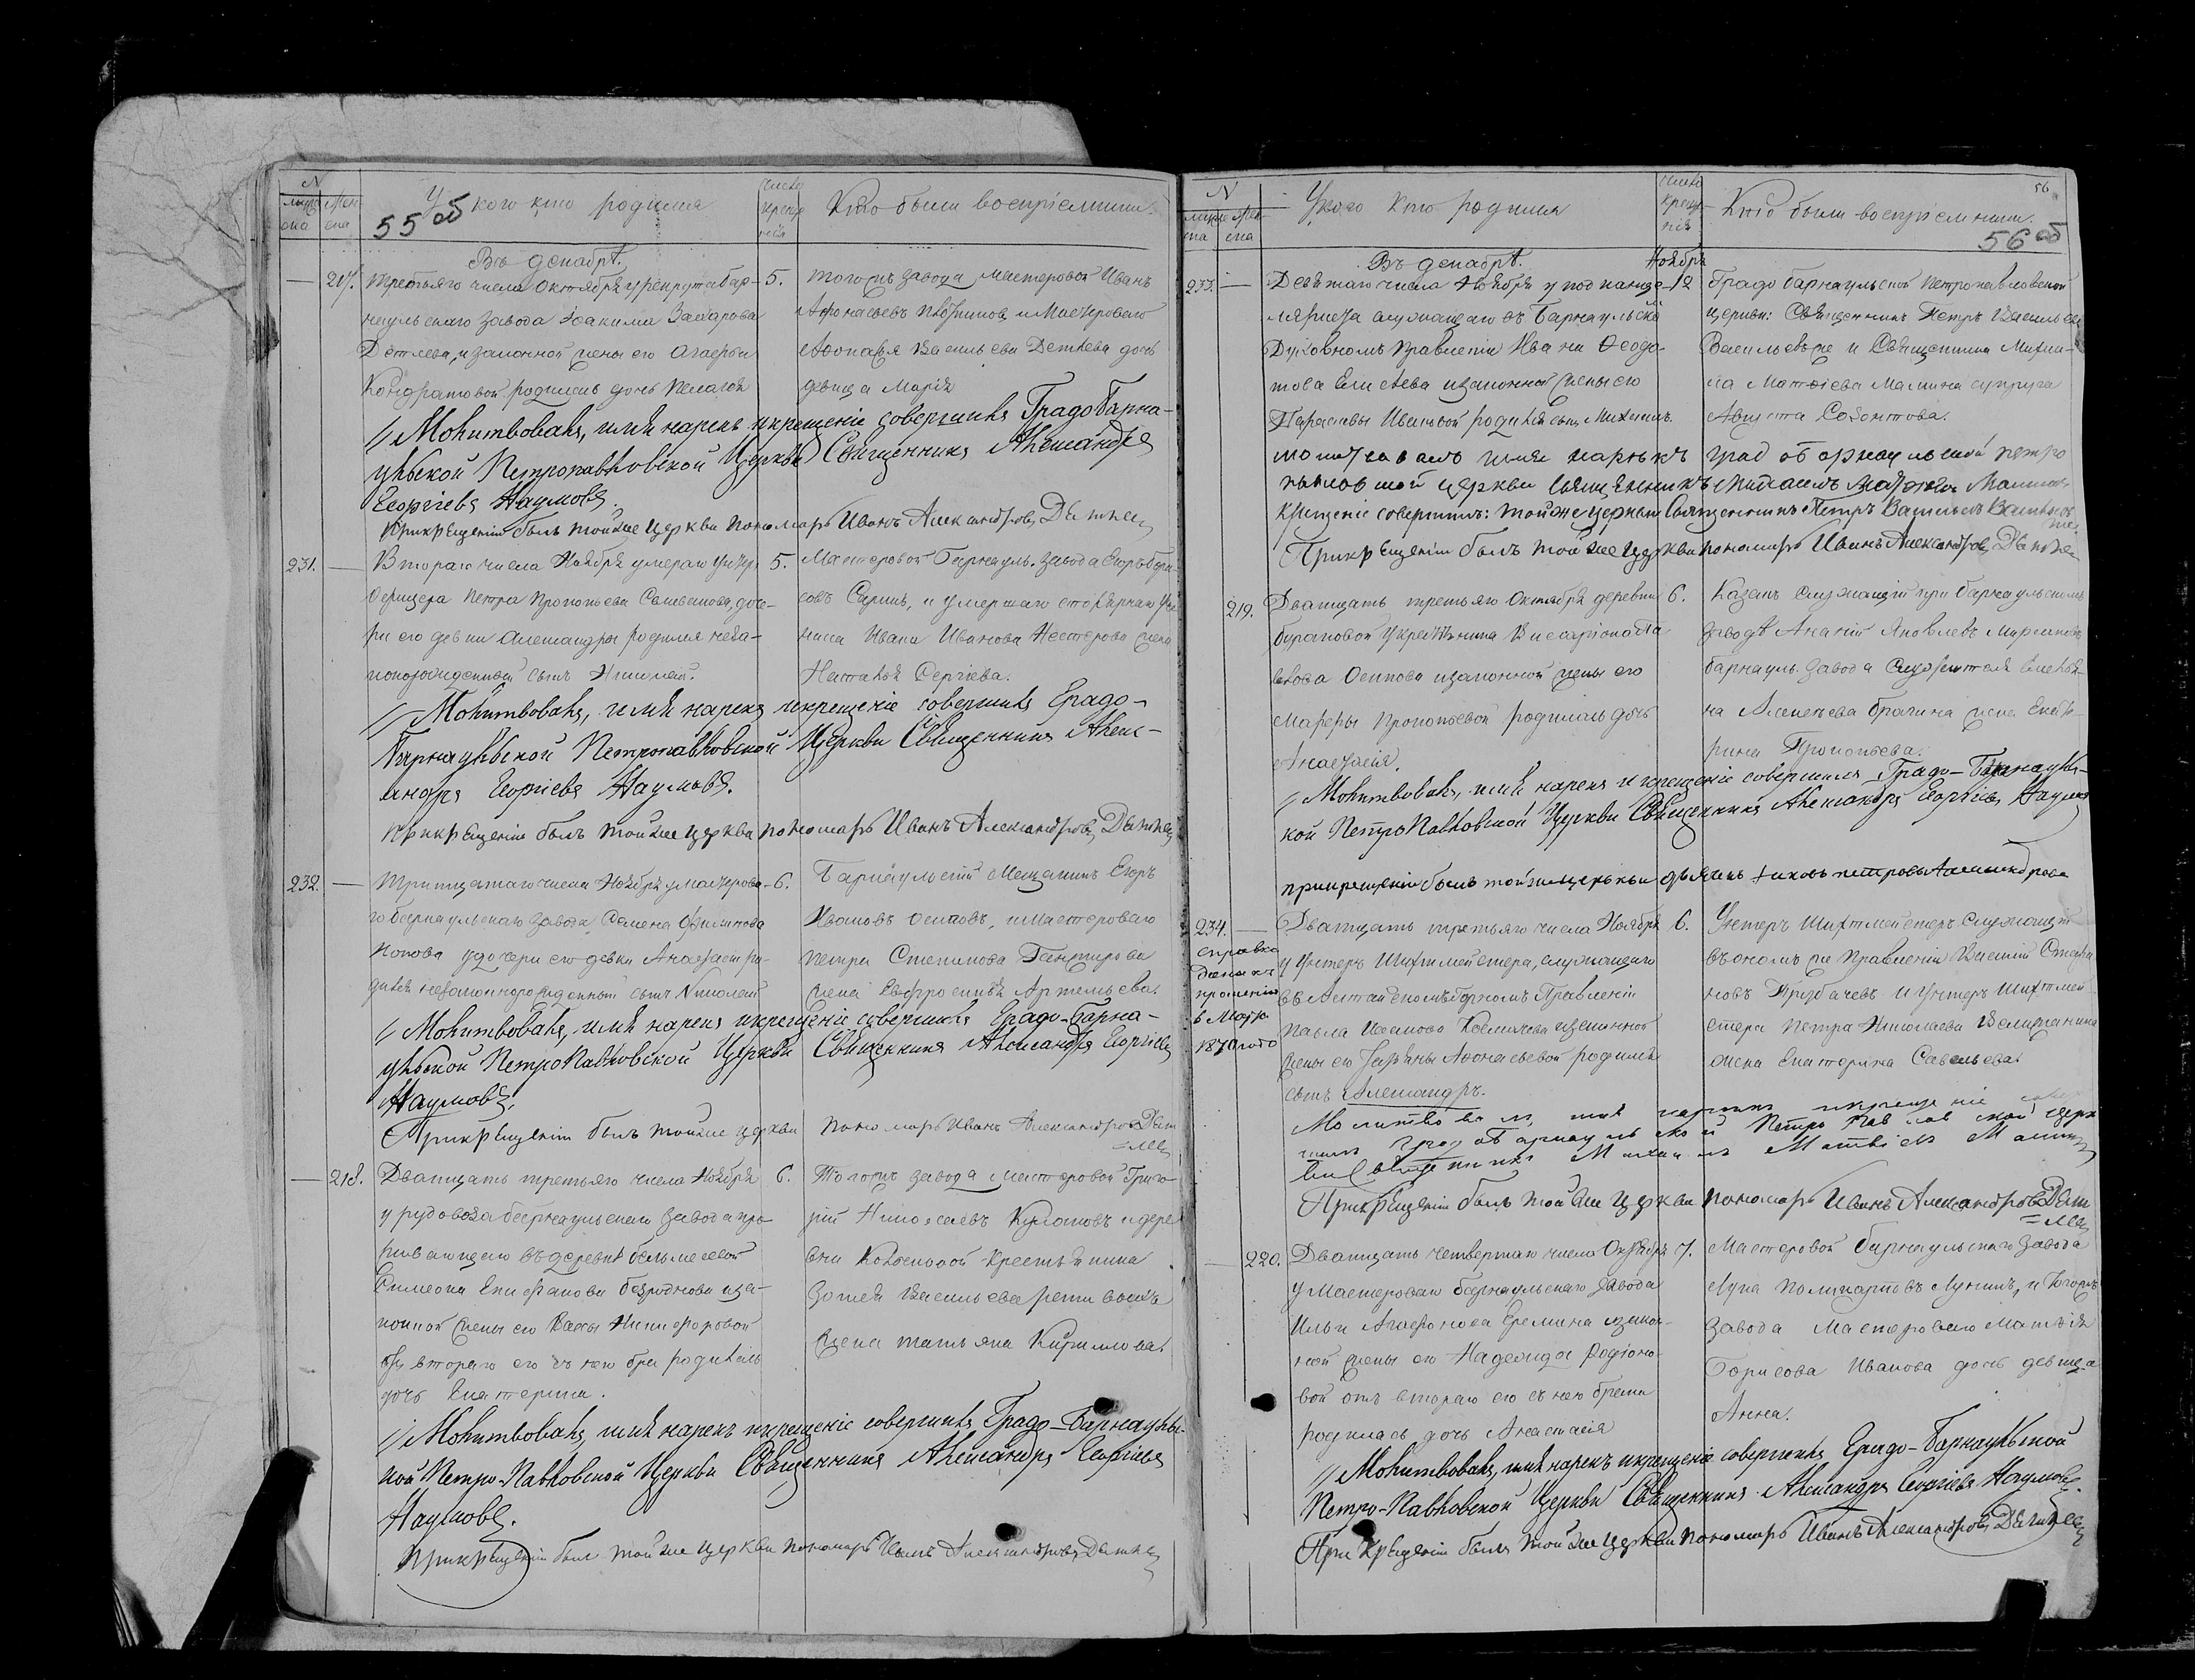 N
муже
ска
Жен
ска
55 об
У кого кто родился
число
креще
нія
Кто были воспріемники.
Въ декабрѣ.
217.
Третьяго числа Октября у рекрута бар-
наульскаго завода Іоакима Захарова
Детлева, и законной жены его Агафьи
Кондратовой родилась дочь Пелагея
5.
того жъ завода мастеровой Иванъ
Афонасьевъ и Мастероваго
Афонасья Васильева Детлева дочь
девица Марія
Молитвовалъ, имя нарекъ и крещеніе совершилъ Градо Барна-
ульской Петропавловской Церкви Священникъ Александръ
Георгіевъ Наумовъ.
При крещеніи былъ той же церкви пономарь Иванъ Александровъ
231.
Втораго числа Ноября умершаго унтеръ
Офицера Петра Прокопьева доче-
ри его девки Александры родился неза-
коннорожденный сынъ Николай.
5.
Мастеровой Барнауль. завода Егоръ
совъ и умершаго
Ивана Иванова Нестерова жена
Наталья Сергіева.
Молитвовалъ, имя нарекъ и крещеніе совершилъ Градо-
Барнаульской Петропавловской Церкви Священникъ Алекс-
андръ Георгіевъ Наумовъ.
При крещеніи былъ той же церкви пономарь Иванъ Александровъ
232.
Тритцатаго числа Ноября у мастерова-
го барнаульскаго завода Семена Филипова
Попова у дочери его девки Анастасіи ро-
дился незаконнорожденный сынъ Николай
6.
Барнаульскій Мещанинъ Егоръ
Ивановъ Осиповъ, и мастероваго
Петра Степанова
жена Евфросинья Артемьева.
Молитвовалъ, имя нарекъ и крещеніе совершилъ Градо-Барна-
ульской Петропавловской Церкви Священникъ Александръ Георгіевъ
Наумовъ.
При крещеніи былъ той же церкви пономарь Иванъ Александровъ
218.
Дватцать третьяго числа Ноября
у рудовоза барнаульскаго завода про-
живающаго въ деревнѣ
Симеона Епифанова Безроднова и за-
конной жены его Вассы Никифоровой
отъ втораго его съ нею брака родилась
дочь Екатерина.
6.
Того жъ завода мастеровой Григо-
рій Николаевъ и дере-
вни крестьянина
Васильева
жена Татьяна Кирилова.
Молитвовалъ, имя нарекъ и крещеніе совершилъ Градо-Барнауль-
кой Петро-Павловской Церкви Священникъ Александръ Георгіевъ
Наумовъ.
При крещеніи былъ той же церкви пономарь Иванъ Александровъ
N
муже
ска
Жен
ска
У кого кто родился
число
креще
нія
Кто были воспріемники.
56
56 об
Въ декабрѣ.
Ноября
233.
Девятаго числа Ноября у под канце-
ляриста служащаго въ Барнаульскомъ
Духовномъ Правленіи Ивана Феодо-
това Елисеева и законной жены его
Парасковьи Ивановой родился сынъ Михаилъ.
12
Градо барнаульской Петропавловской
церкви: Священникъ Петръ Васильевъ
и Священника Михаи-
ла Матфіева Малина супруга
Августа Созонтова.
Молитвовалъ имя нарекъ градобарнаульской петро
павловской церкви священникъ Михаилъ Малинъ
Крещеніе совершилъ: той же церкви Священникъ Петръ Васильевъ
При крещеніи былъ той же церкви пономарь Иванъ Александровъ
219.
Дватцать третьяго Октября деревни
Бураковой у крестьянина
Осипова и законной жены его
Марфы Прокопьевой родилась дочь
Анастасія.
6.
Казакъ служащій при барнаульскомъ
заводѣ Ананій Яковлевъ
барнауль. завода служителя
на Алексеева Брагина жена Екате-
рина Прокопьева.
Молитвовалъ, имя нарекъ и крещеніе совершилъ Градо-Барнауль-
кой Петропавловской Церкви Священникъ Александръ Георгіевъ Наумовъ
при крещеніи былъ той же церькви дьячекъ петровъ
234.
справка
дана къ
прошенію
в Март
1870 года
Дватцать третьяго числа Ноября
у Унтеръ Шихтмейстера, служащаго
въ Алтайскомъ Горномъ Правленіи
Павла и законной
жены его Афонасьевой родился
сынъ Александръ.
6.
Унтеръ Шихтмейстеръ служащій
въ ономъ же Правленіи Василій Степа-
новъ и Унтеръ Шихтмей
стера Петра Николаева
жена Екатерина Савельева.
Молитвовалъ, имя нарекъ и крещеніе совер
шилъ градобарнаульской Петро Павловской церк
ви священникъ Михаилъ Матвіевъ Малинъ
При крещеніи былъ той же церкви пономарь Иванъ Александровъ
220.
Дватцать четвертаго числа Октября
у Мастероваго барнаульскаго завода
Ильи Агафонова Еремина и закон-
ной жены его Надежды Родіоно-
вой отъ втораго его съ нею брака
родилась дочь Анастасія
7.
Мастеровой барнаульскаго завода
Лука Поликарповъ Лукинъ, и тогожъ
завода Мастероваго Матвѣя
Борисова Иванова дочь девица
Анна.
Молитвовалъ, имя нарекъ и крещеніе совершилъ Градо-Барнаульской
Петро-Павловской Церкви Священникъ Александръ Георгіевъ Наумовъ.
При крещеніи былъ той же церкви пономарь Иванъ Александровъ